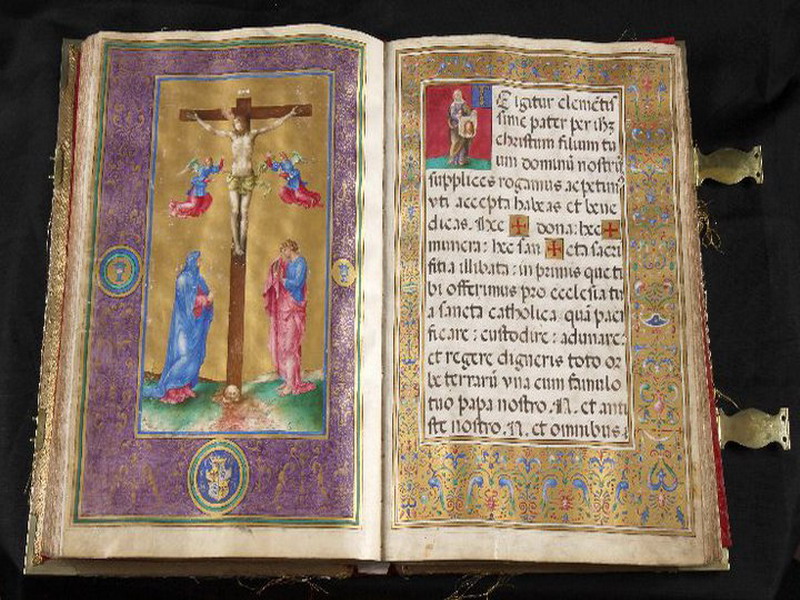 INRI
T
E igitur clemẽtis
sime pater per ihꝫ
christum filium tu
um dominũ nostrũ
supplices rogamus ac petim⁹
vti accepta habeas et bene
dicas. Hec ✠ dona: hec ✠
munera: hec san ✠ cta sacri
ficia illibata: in primis que ti
bi offerimus pro ecclesia tu
a sancta catholica. quã paci
ficare: custodire: adunare:
et regere digneris toto or
be terrarũ vna cum famulo
tuo papa nostro. N. et anti
ste nostro. N. et omnibus